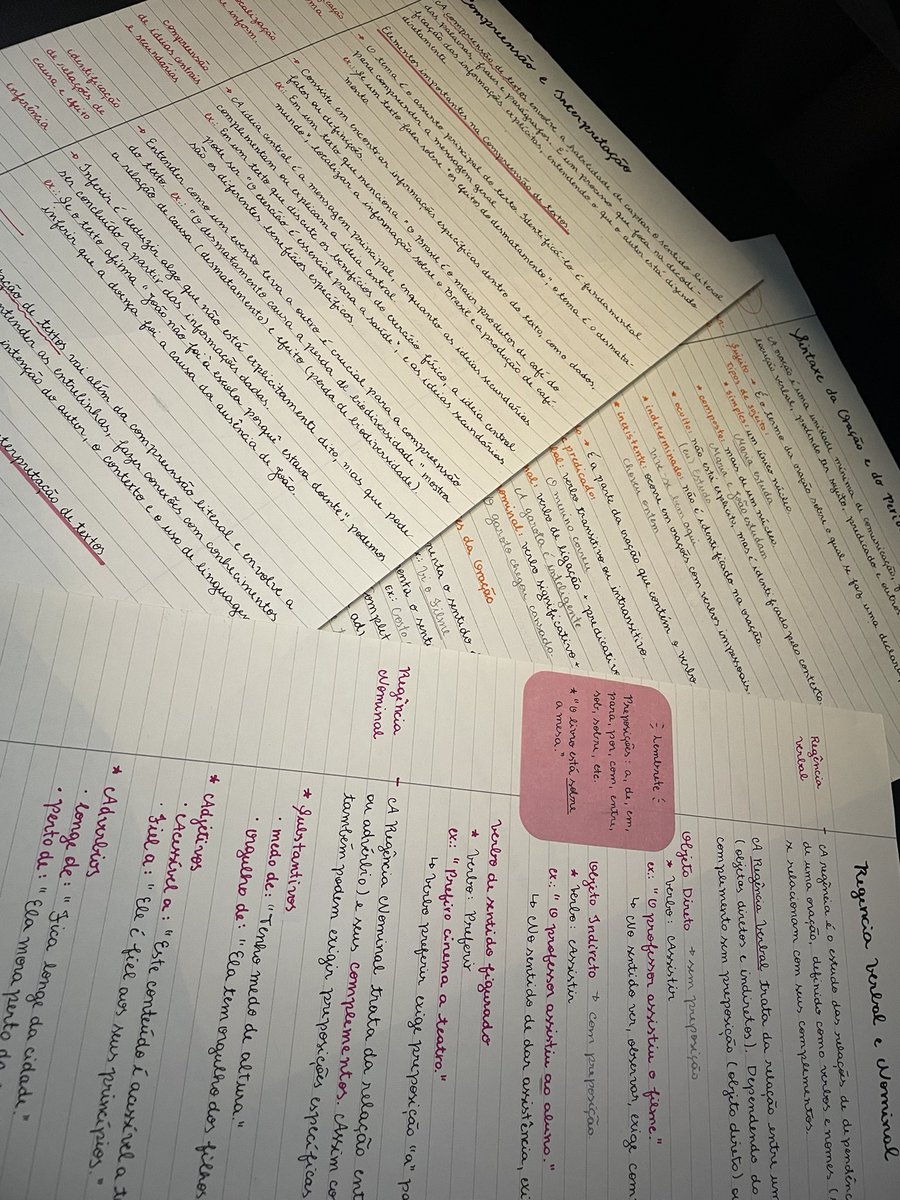 Compreensão e Interpretação
A compreensão de textos envolve a habilidade de captar o sentido literal
das palavras, frases e parágrafos. É um processo que foca na decodi-
ficação das informações explícitas, entendendo o que o autor está dizendo
diretamente.
Elementos importantes na compreensão de textos
→ O tema é o assunto principal do texto. Identificá-lo é fundamental
para compreender a mensagem geral.
ex.: Se um texto fala sobre "os efeitos do desmatamento", o tema é o desmata-
mento.
localização
de inform.
→ Consiste em encontrar informações específicas dentro do texto, como dados,
fatos ou definições.
ex.: Em um texto que menciona "O Brasil é o maior produtor de café do
mundo", localizar a informação sobre o Brasil e a produção de café.
compreensão
de ideias centrais
e secundárias
→ A ideia central é a mensagem principal, enquanto as ideias secundárias
complementam ou explicam a ideia central.
ex.: Em um texto que discute os benefícios do exercício físico, a ideia central
pode ser "O exercício é essencial para a saúde", e as ideias secundárias
são os diferentes benefícios específicos.
identificação
de relações de
causa e efeito
→ Entender como um evento leva a outro é crucial para a compreensão
do texto. ex.: "O desmatamento causa a perda de biodiversidade" mostra
a relação de causa (desmatamento) e efeito (perda de biodiversidade).
inferência
→ Inferir é deduzir algo que não está explicitamente dito, mas que pode
ser concluído a partir das informações dadas.
ex.: Se o texto afirma "João não foi à escola porquê estava doente", podemos
inferir que a doença foi a causa da ausência de João.
de textos vai além da compreensão literal e envolve a
entender as entrelinhas, fazer conexões com conhecimentos
intenção do autor, o contexto e o uso de linguagem
de textos
Sintaxe da Oração e do
A oração é uma unidade mínima de comunicação,
locução verbal, podendo ter sujeito, predicado e outros
Sujeito → É o termo da oração sobre o qual se faz uma declara
Tipos de sujeito:
• simples: um único núcleo.
Maria estuda.
• composto: mais de um núcleo.
Maria e João estudam.
• oculto: não está explícito, mas é identificado pelo contexto.
(eu) Estudo
• indeterminado: não é identificado na oração.
Vive-se bem aqui.
• inexistente: ocorre em orações com verbos impessoais.
Choveu ontem.
→ É a parte da oração que contém o verbo
predicado:
verbo transitivo ou intransitivo.
O menino correu
verbo de ligação + predicativo
A garota é inteligente
verbo significativo +
O garoto chegou cansado.
da Oração
o sentido
Regência Verbal e Nominal
Regência
Verbal
– A regência é o estudo das relações de dependên
de uma oração, definido como verbos e nomes (
se relacionam com seus complementos.
A Regência Verbal trata da relação entre um
(objetos diretos e indiretos). Dependendo do
complemento sem preposição (objeto direto)
Objeto Direto → sem preposição
* Verbo: Assistir
ex.: "O professor assistiu o filme."
↳ No sentido ver, observar, exige com
Objeto Indireto → com preposição
* Verbo: Assistir
ex.: "O professor assistiu ao aluno."
↳ No sentido de dar assistência, exi
Lembrete
Preposições: a, de, em,
para, por, com, entre,
sob, sobre, etc.
* "O livro está sobre
a mesa."
Verbo de sentido figurado
* Verbo: Preferir
ex.: "Prefiro cinema a teatro."
↳ Verbo preferir exige preposição "a" pa
Regência
Nominal
– A Regência Nominal trata da relação ent
ou advérbio) e seus complementos. Assim co
também podem exigir preposições específicas
* Substantivos
• medo de: "Tenho medo de altura."
• orgulho de: "Ela tem orgulho dos filhos
* Adjetivos
• Acessível a: "Este conteúdo é acessível a t
• Fiel a: "Ele é fiel aos seus princípios."
* Advérbios
• longe de: "Fica longe da cidade."
• perto de: "Ela mora perto da